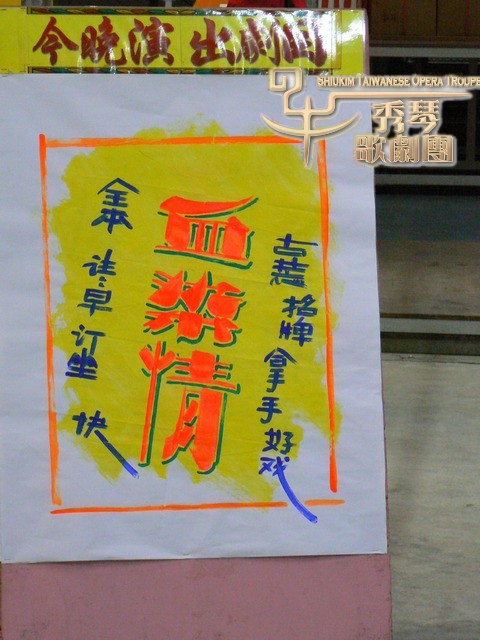 今晚演出劇目
SHIUKIM TAIWANESE OPERA TROUPE
秀琴
歌劇團
古装 招牌 拿手 好戏
血染情
全本 请早 订坐 快